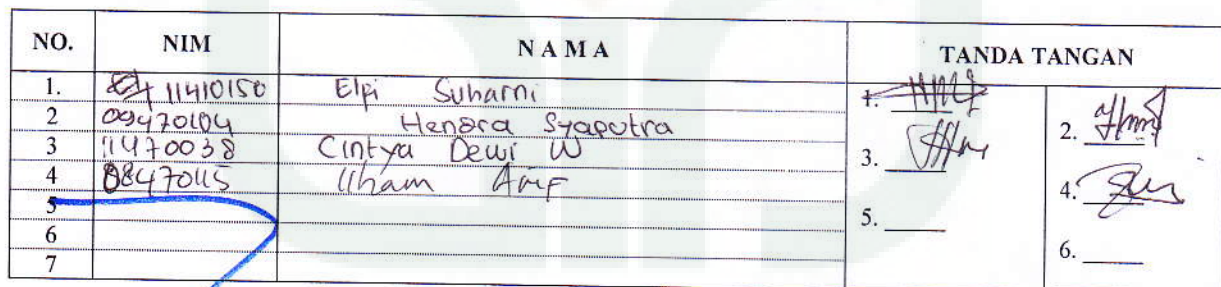 NO. NIM N A M A TANDA TANGAN
1. 11410150 Elpi Suharni 1.
2 09470104 Hendra Syaputra 2.
3 11470038 Cintya Dewi W 3.
4 08470115 Ilham Arif 4.
5 5.
6 6.
7